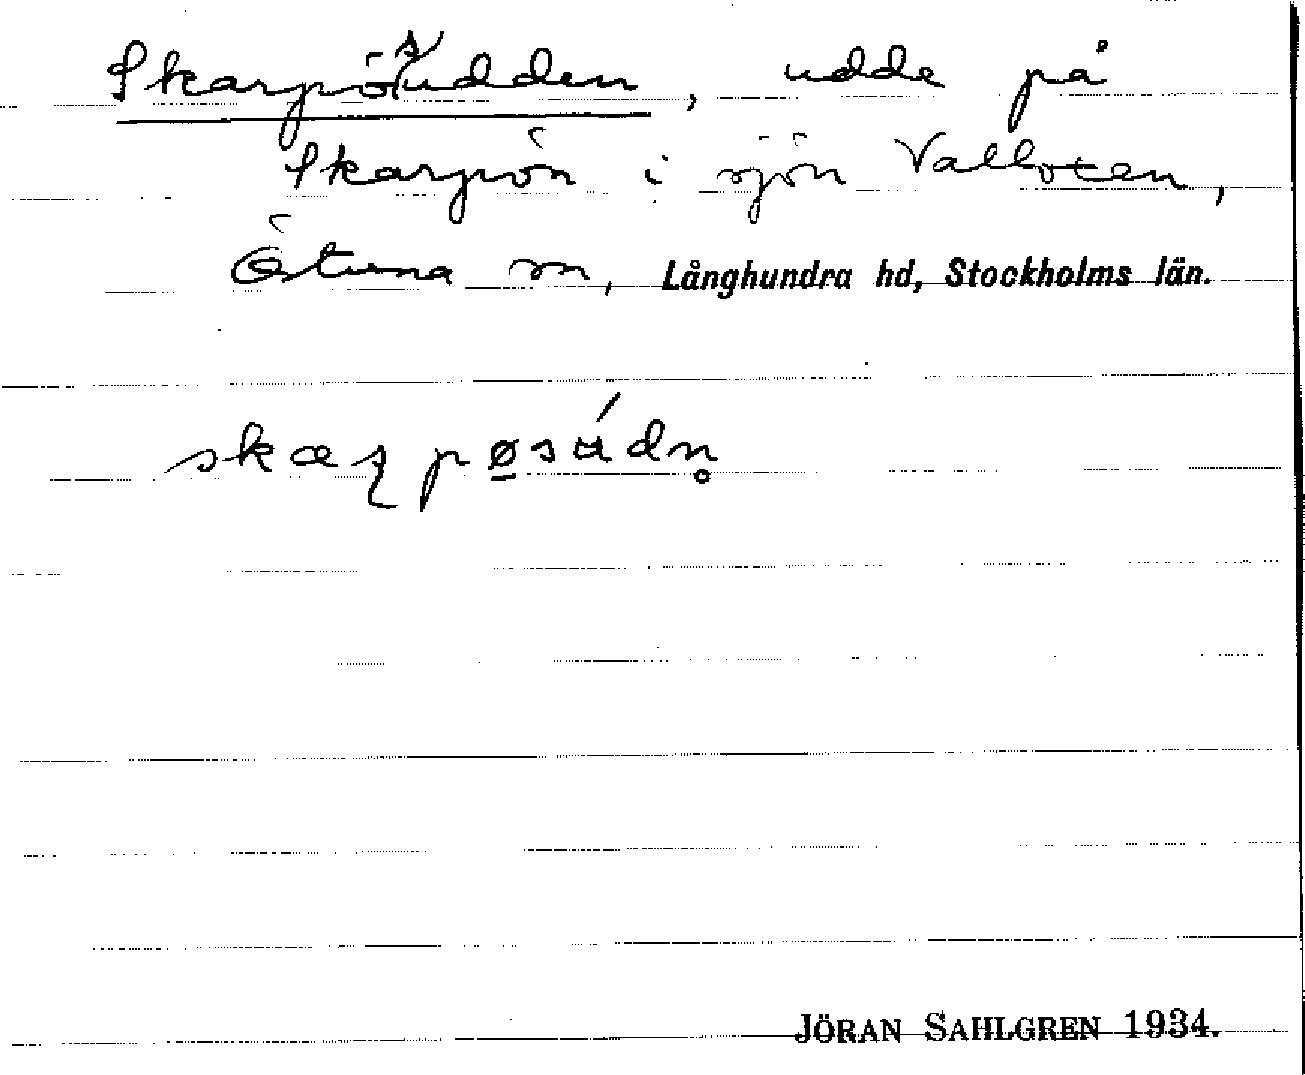 Skarpösudden, udde på
Skarpön i sjön Valloxen,
Östuna sn, Långhundra hd, Stockholms län.
JÖRAN SAHLGREN 1934.